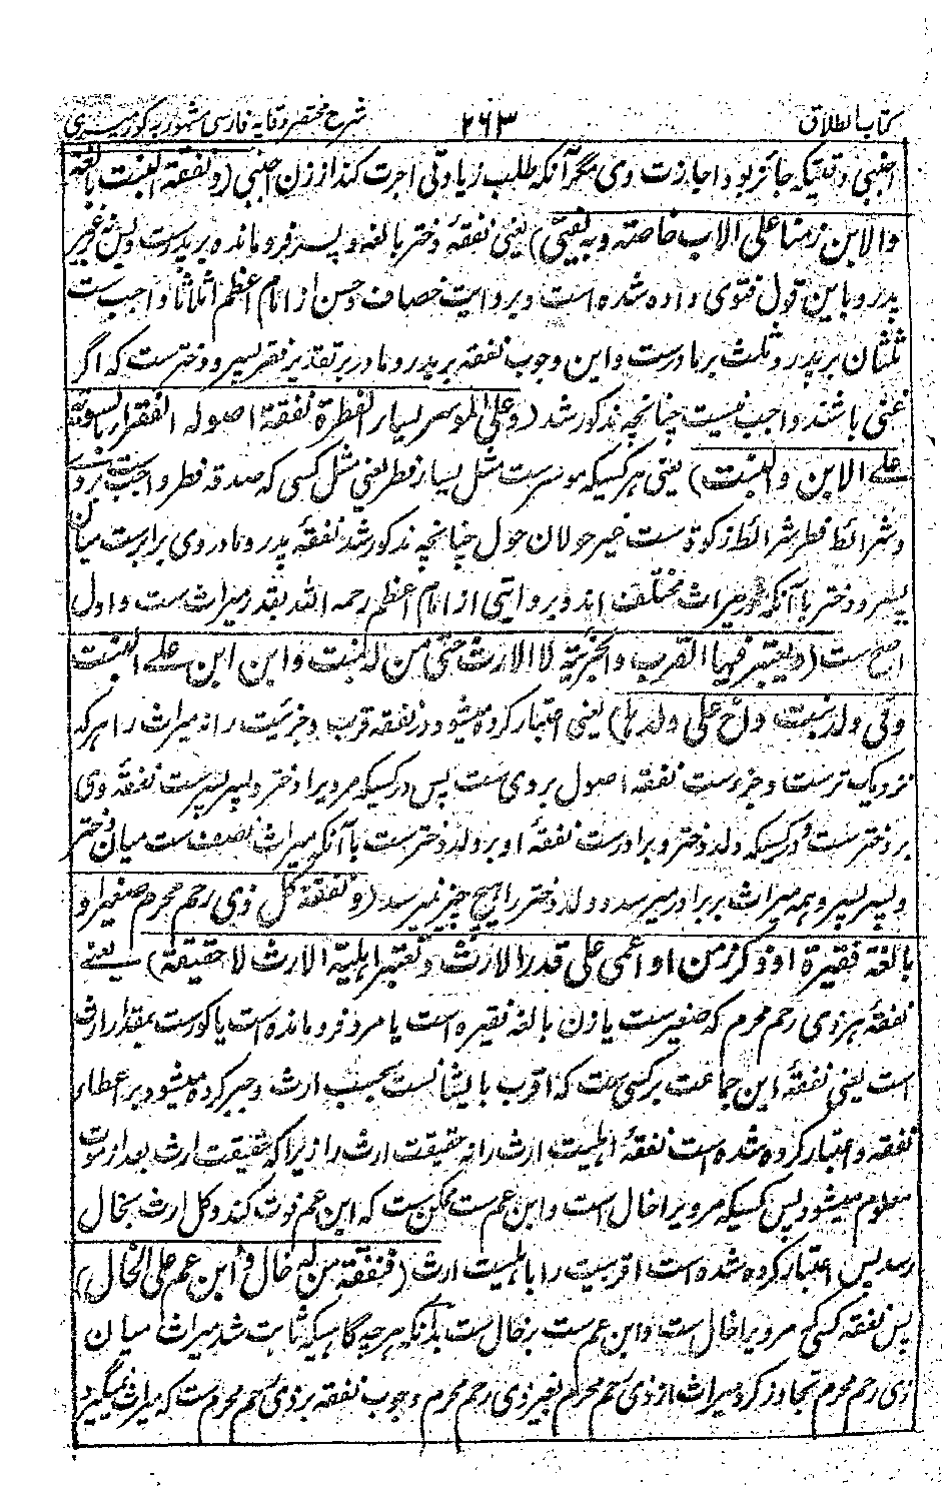 کتاب الطلاق ۲۶۳ شرح مختصر وقایه فارسی مشهور به کور میری
اجنبی وقتیکه جائز بود اجازت وی مگر آنکه طلب زیادتی اجرت کند از زن اجنبی (و نفقة البنت بالغة
والابن زمنا علی الاب خاصته وبه یفتیٰ) یعنی نفقهٔ دختر بالغه و پسر فرو مانده بر پدرست ولیس غیر
پدر و باین قول فتوی داده شده است و بروایت خصاف و حسن از امام اعظم اثلاثا واجب ست
ثلثان بر پدر و ثلث بر مادرست و این وجوب نفقه بر پدر و مادر بر تقدیر فقر پسر و دخترست که اگر
غنی باشند واجب نیست چنانچه مذکور شد (وعلی الموسر یسار الفطرة نفقة اصوله الفقراء بالسویة
علے الابن والبنت) یعنی هر کسیکه موسرست مثل یسار فطر یعنی مثل کسی که صدقه فطر واجب ست بر وے
و شرائط فطر شرائط زکوة ست غیر حولان حول چنانچه مذکور شد نفقهٔ پدر و مادر وی برابرست میان
پسر و دختر با آنکه در میراث مختلف اند و بروایتی از امام اعظم رحمه الله بقدر میراث ست و اول
اصح ست (ویعتبر فیها القرب والجزئیة لا الارث حتی من له بنت وابن ابن علے البنت
وفی ولد بنت واخ علی ولدها) یعنی اعتبار کرده میشود در نفقه قرب و جزئیت را نه میراث را هر که
نزدیک ترست و جزءست نفقهٔ اصول بر وی ست پس در کسیکه مر ویرا دختر و پسر پسرست نفقهٔ وی
بر دخترست و در کسیکه ولد دختر و برادرست نفقهٔ او بر ولد دخترست با آنکه میراث نصف ست میان دختر
و پسر پسر و همه میراث بر برادر میرسد و ولد دختر را هیچ چیز نمیرسد (ونفقة کل ذی رحم محرم صغیر او
بالغة فقیرة او ذکر زمن او اعمی علی قدر الارث وتعتبر اهلیة الارث لا حقیقة) یعنے
نفقهٔ هر ذی رحم محرم که صغیرست یا زن بالغه فقیره است یا مرد فرو مانده است یا کورست بمقدار ارث
است یعنی نفقهٔ این جماعت بر کسی ست که اقرب بایشانست بحسب ارث و جبر کرده میشود بر اعطاء
نفقه و اعتبار کرده شده است نفقهٔ اهلیت ارث را نه حقیقت ارث را زیرا که حقیقت ارث بعد از موت
معلوم میشود پس کسیکه مر ویرا خال است و ابن عم ست ممکن ست که ابن عم فوت کند و کل ارث بخال
رسد پس اعتبار کرده شده است اقربیت را باهلیت ارث (فنفقة من له خال وابن عم علی الخال)
پس نفقه کسی که مر ویرا خال ست و ابن عم ست بر خال ست بدانکه هر چه گاهیکه ثابت شد میراث میان
ذی رحم محرم تجاوز کرد میراث از ذی رحم محرم بغیر ذی رحم محرم وجوب نفقه بر ذی رحم محرم ست که میراث نمیگیرد